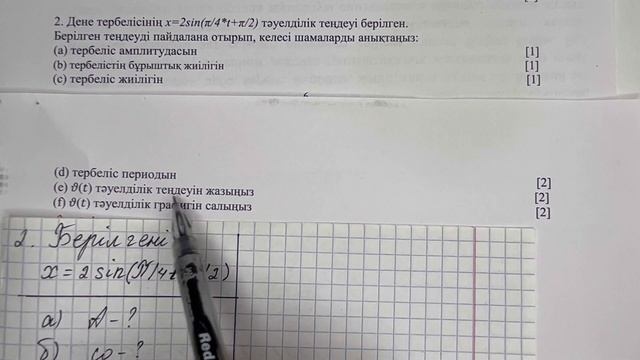 2. Дене тербелісінің x=2sin(π/4*t+π/2) тәуелділік теңдеуі берілген.
Берілген теңдеуді пайдалана отырып, келесі шамаларды анықтаңыз:
(a) тербеліс амплитудасын [1]
(b) тербелістің бұрыштық жиілігін [1]
(c) тербеліс жиілігін [1]
(d) тербеліс периодын [2]
(e) ϑ(t) тәуелділік теңдеуін жазыңыз [2]
(f) ϑ(t) тәуелділік графигін салыңыз [2]
2. Берілгені
x = 2 sin(π/4 /2)
а) A - ?
б) ω - ?
Red